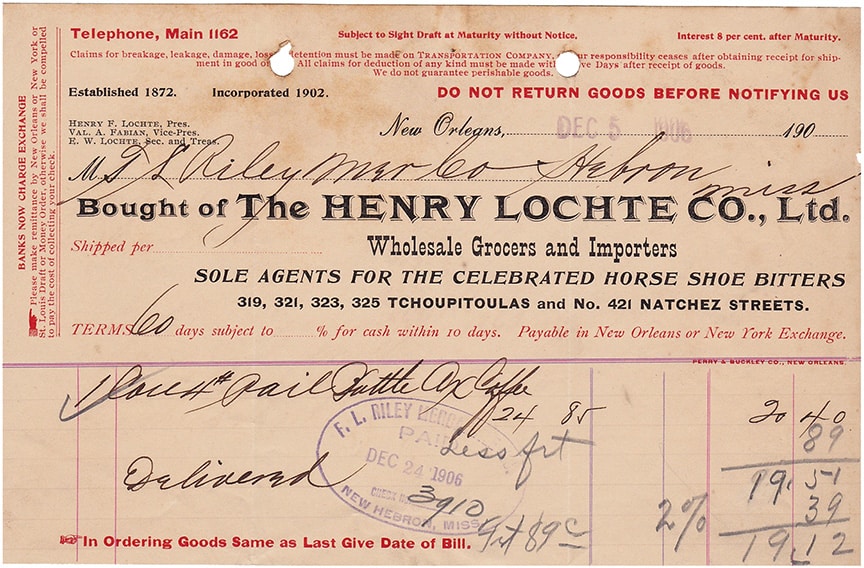 Telephone, Main 1162
Subject to Sight Draft at Maturity without Notice.
Interest 8 per cent. after Maturity.
Claims for breakage, leakage, damage, loss detention must be made on TRANSPORTATION COMPANY, our responsibility ceases after obtaining receipt for ship-
ment in good All claims for deduction of any kind must be made Days after receipt of goods.
We do not guarantee perishable goods.
Established 1872. Incorporated 1902.
DO NOT RETURN GOODS BEFORE NOTIFYING US
HENRY F. LOCHTE, Pres.
VAL. A. FABIAN, Vice-Pres.
E. W. LOCHTE, Sec. and Treas.
New Orleans, DEC 5 1906 190
M F L Riley Mer Co Hebron Miss
Bought of The HENRY LOCHTE CO., Ltd.
Shipped per
Wholesale Grocers and Importers
SOLE AGENTS FOR THE CELEBRATED HORSE SHOE BITTERS
319, 321, 323, 325 TCHOUPITOULAS and No. 421 NATCHEZ STREETS.
TERMS 60 days subject to % for cash within 10 days. Payable in New Orleans or New York Exchange.
BANKS NOW CHARGE EXCHANGE
Please make remittance by New Orleans or New York or
St. Louis Draft or Money Order, otherwise we shall be compelled
to pay the cost of collecting your check.
PERRY & BUCKLEY CO., NEW ORLEANS.
1 4# Pail Battle Ax
24 85 20 40
Less frt 89
19.51
Delivered
F. L. RILEY
PAID
DEC 24 1906
CHECK
3910
NEW HEBRON, MISS.
frt 89c 2% 39
19.12
In Ordering Goods Same as Last Give Date of Bill.